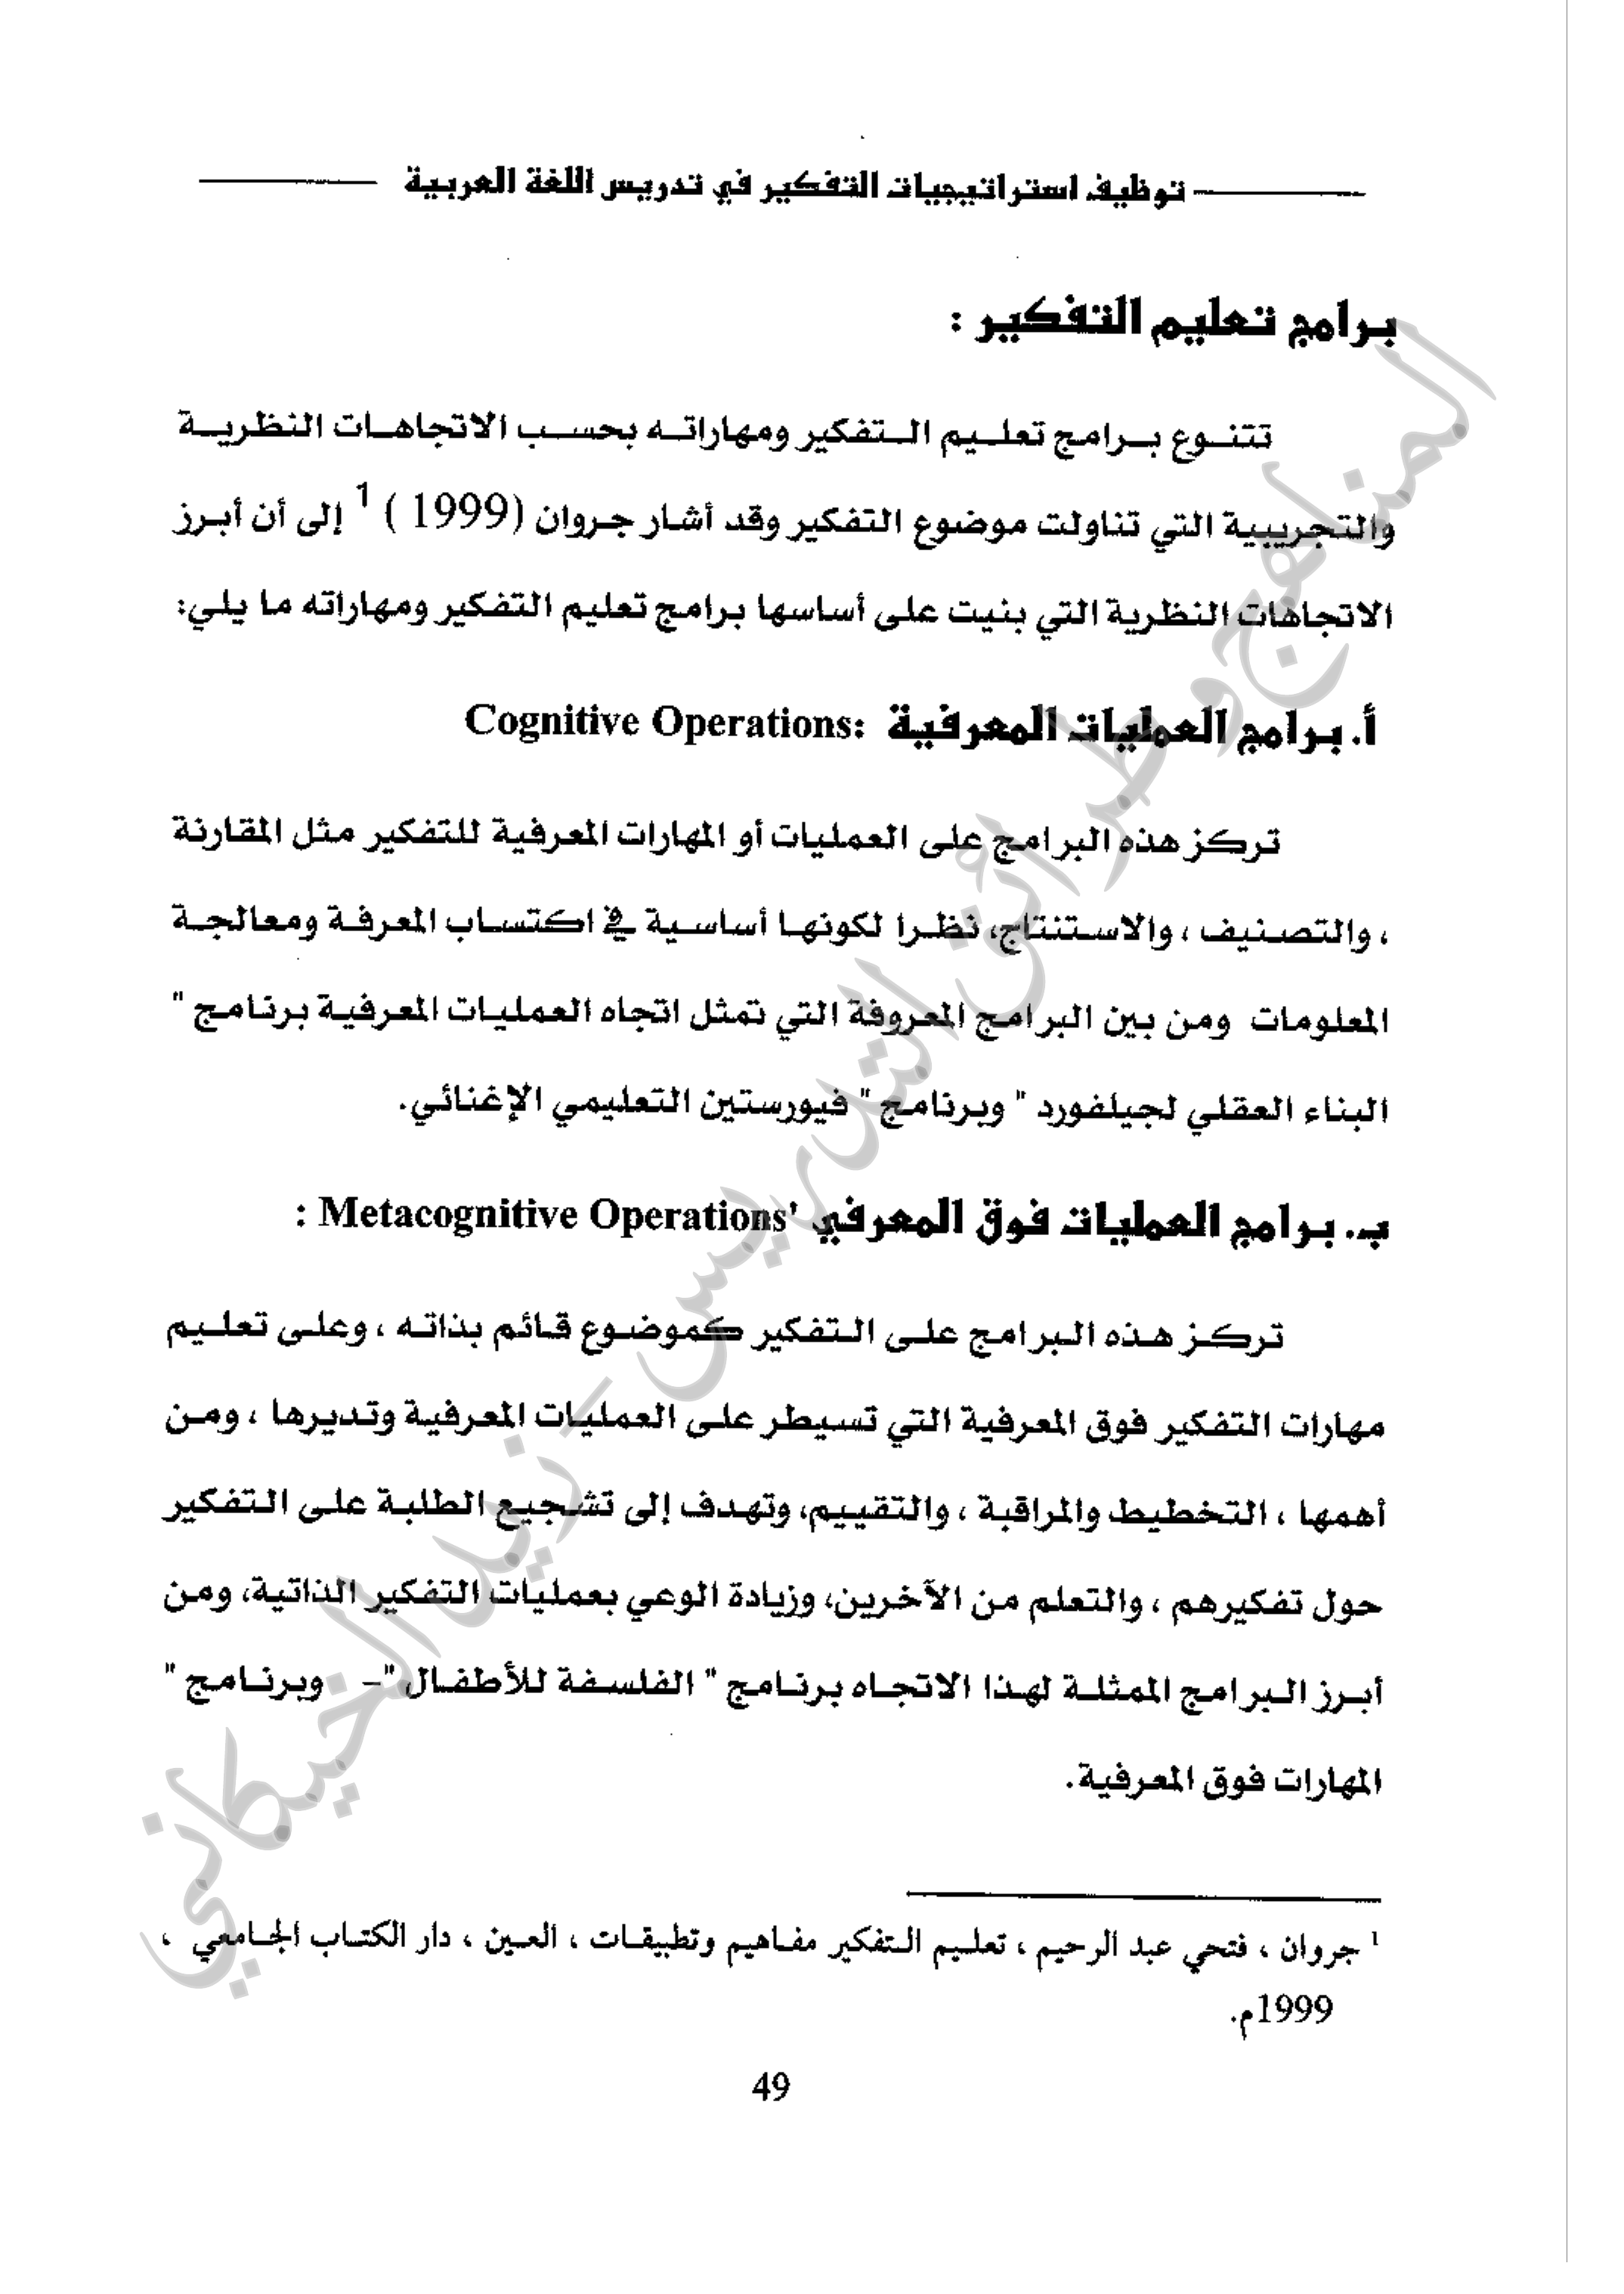 توظيف استراتيجيات التفكير في تدريس اللغة العربية
برامج تعليم التفكير :
تتنوع برامج تعليم التفكير ومهاراته بحسب الاتجاهات النظرية
والتجريبية التي تناولت موضوع التفكير وقد أشار جروان (1999 ) 1 إلى أن أبرز
الاتجاهات النظرية التي بنيت على أساسها برامج تعليم التفكير ومهاراته ما يلي:
أ. برامج العمليات المعرفية Cognitive Operations:
تركز هذه البرامج على العمليات أو المهارات المعرفية للتفكير مثل المقارنة
، والتصنيف ، والاستنتاج، نظرا لكونها أساسية في اكتساب المعرفة ومعالجة
المعلومات ومن بين البرامج المعروفة التي تمثل اتجاه العمليات المعرفية برنامج "
البناء العقلي لجيلفورد " وبرنامج " فيورستين التعليمي الإغنائي.
ب. برامج العمليات فوق المعرفي 'Metacognitive Operations :
تركز هذه البرامج على التفكير كموضوع قائم بذاته ، وعلى تعليم
مهارات التفكير فوق المعرفية التي تسيطر على العمليات المعرفية وتديرها ، ومن
أهمها ، التخطيط والمراقبة ، والتقييم، وتهدف إلى تشجيع الطلبة على التفكير
حول تفكيرهم ، والتعلم من الآخرين، وزيادة الوعي بعمليات التفكير الذاتية، ومن
أبرز البرامج الممثلة لهذا الاتجاه برنامج " الفلسفة للأطفال "- وبرنامج "
المهارات فوق المعرفية.
1 جروان ، فتحي عبد الرحيم ، تعليم التفكير مفاهيم وتطبيقات ، العين ، دار الكتاب الجامعي ،
1999م.
49
المناهج وطرائق التدريس - زيد الخيكاني